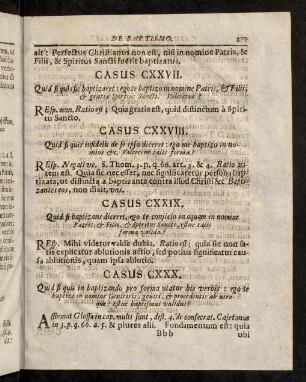 DE BAPTISMO.
ait: Perfectus Christianus non est, nisi in nomine Patris, &
Filii, & Spiritus Sancti fuerit baptizatus.
CASUS CXXVII.
Quid si quis sic baptizaret: ego te baptizo in nomine Patris, & Filii,
& gratiæ Spiritus Sancti. Valeretne?
REsp. non. Ratio est; Quia gratia est, quid distinctum à Spiri-
tu Sancto.
CASUS CXXVIII.
Quid si quis infidelis de se ipso diceret: ego me baptizo in no-
mine &c. Valeretne talis forma?
REsp. Negativè. S. Thom. 3. p. q. 66. art. 5. & 4. Ratio au-
tem est. Quia sic nec esset, nec significaretur persona bap-
tizata, ut distincta à baptizante contra illud Christi &c. Bapti-
zantes eos, non dixit, vos.
CASUS CXXIX.
Quid si baptizans diceret, ego te conjicio in aquam in nomine
Patris, & Filii, & Spiritus Sancti, essetne talis
forma valida?
REsp. Mihi videtur valde dubia. Ratio est; quia sic non sa-
tis explicatur ablutionis actio, sed potius significatur cau-
sa ablutionis, quam ipsa ablutio.
CASUS CXXX.
Quid si quis in baptizando pro forma utatur his verbis: ego te
baptizo in nomine Genitoris, geniti, & procedentis ab utro-
que: estne baptismus validus?
AFfirmat Glossa in cap. multi sunt, dist. 4. de consecrat. Cajetanus
in 3. p. q. 66. a. 5. & plures alii. Fundamentum est: quia
Bbb ubi